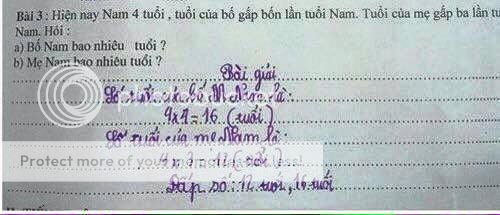 Bài 3 : Hiện nay Nam 4 tuổi , tuổi của bố gấp bốn lần tuổi Nam. Tuổi của mẹ gấp ba lần tu
Nam. Hỏi :
a) Bố Nam bao nhiêu tuổi ?
b) Mẹ Nam bao nhiêu tuổi ?
Bài giải
Số tuổi của bố Nam là:
4x4=16 (tuổi)
Số tuổi của mẹ Nam là:
Protect more of your memories for less!
Đáp số: 12 tuổi, 16 tuổi